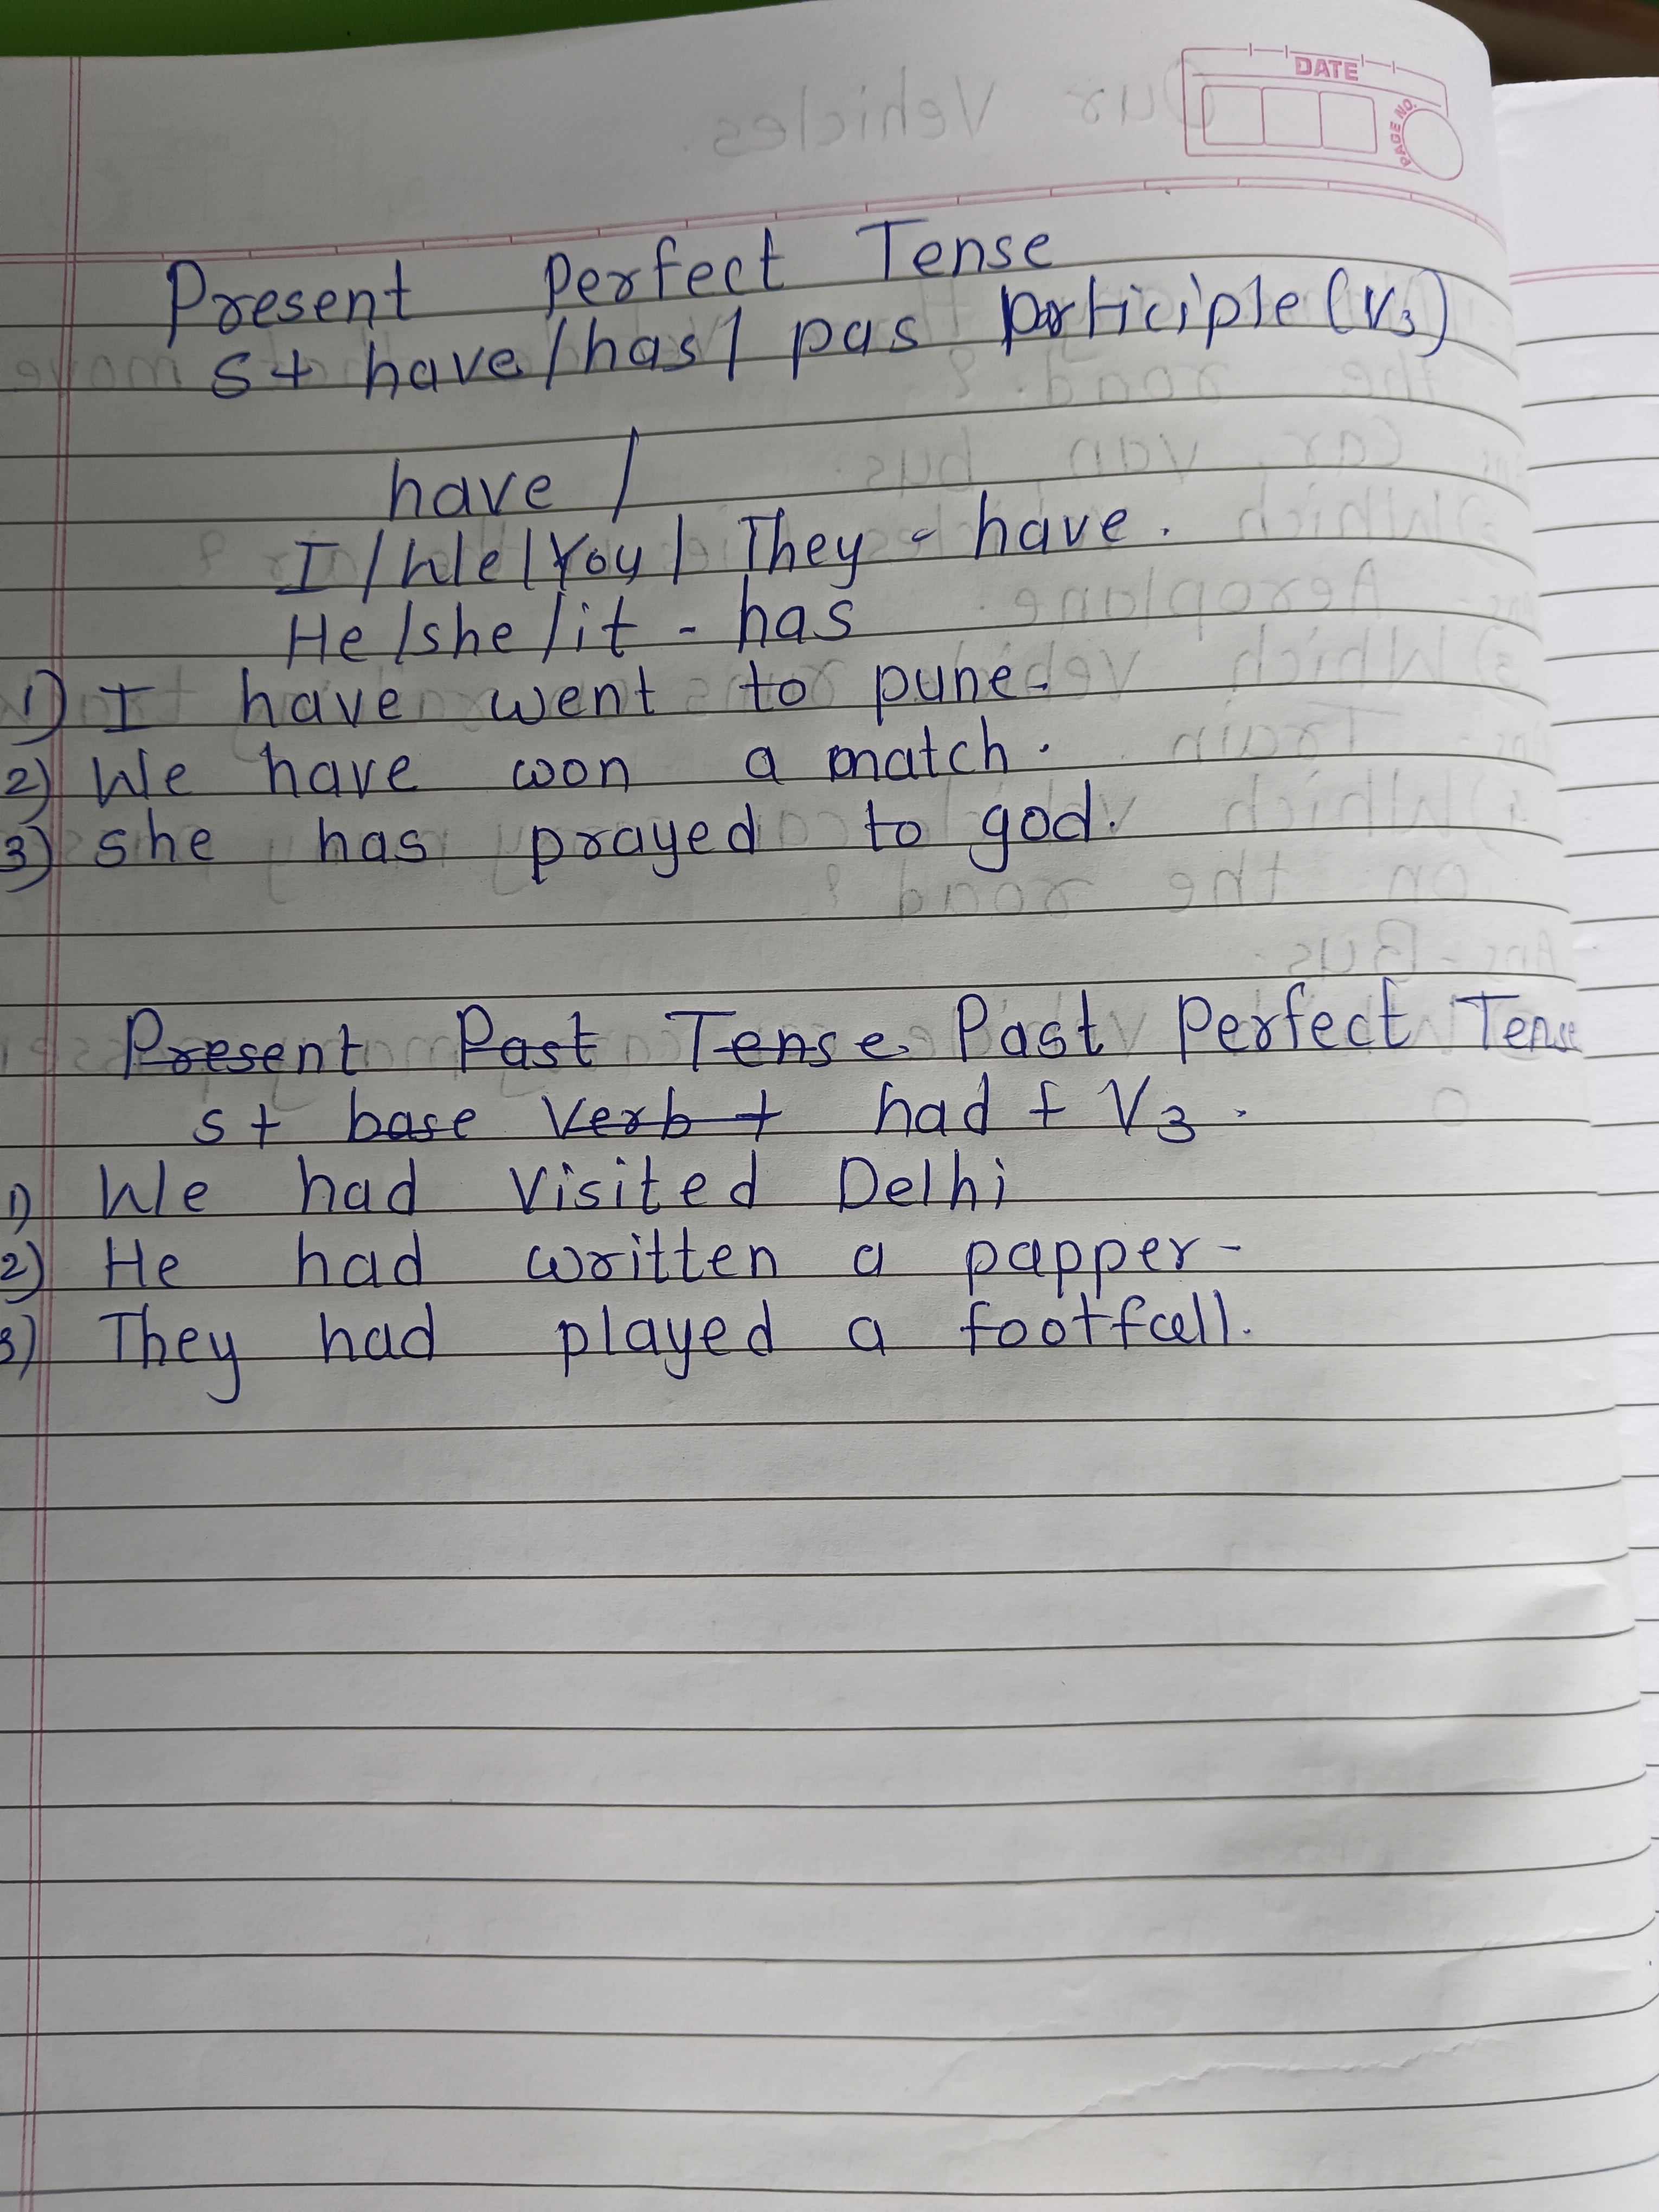 DATE
PAGE NO.
Present Perfect Tense
S+ have/has/ pas participle (V3)
have /
I/We/You/ They - have.
He/she/it - has
1) I have went to pune.
2) We have won a match.
3) she has prayed to god.
Present Past Tense Past Perfect Tense
s+ base Verb + had + V3.
1) We had visited Delhi
2) He had written a papper-
3) They had played a footfall.